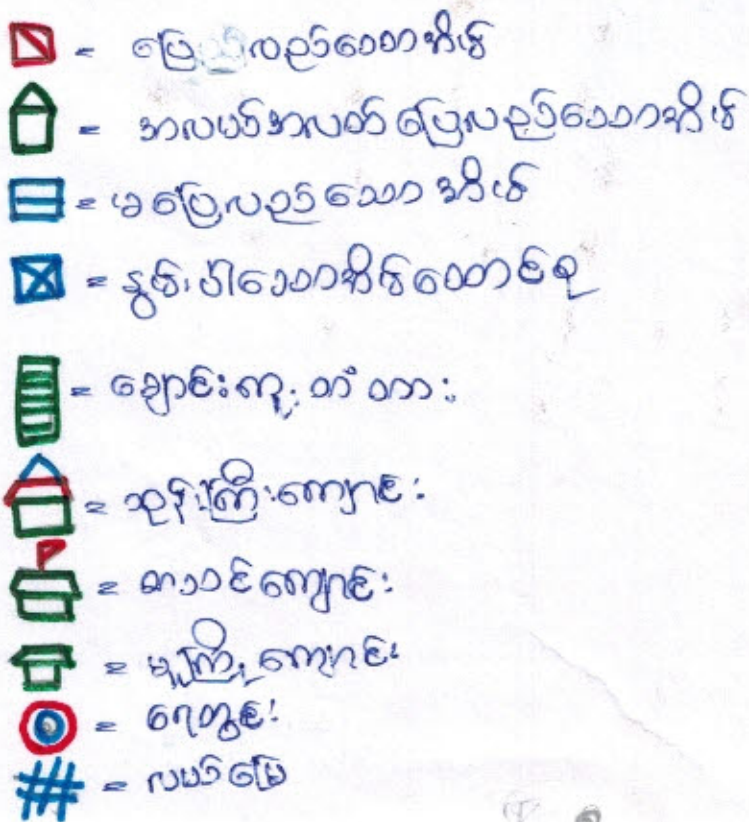 = ပြေလည်သောအိမ်
= အလယ်အလတ် ပြေလည်သောအိမ်
= မပြေလည်သောအိမ်
= နွမ်းပါးသောအိမ်ထောင်စု
= ချောင်းကူးတံတား
= ဘုန်းကြီးကျောင်း
= စာသင်ကျောင်း
= မူကြိုကျောင်း
= ရေတွင်း
= လယ်မြေ